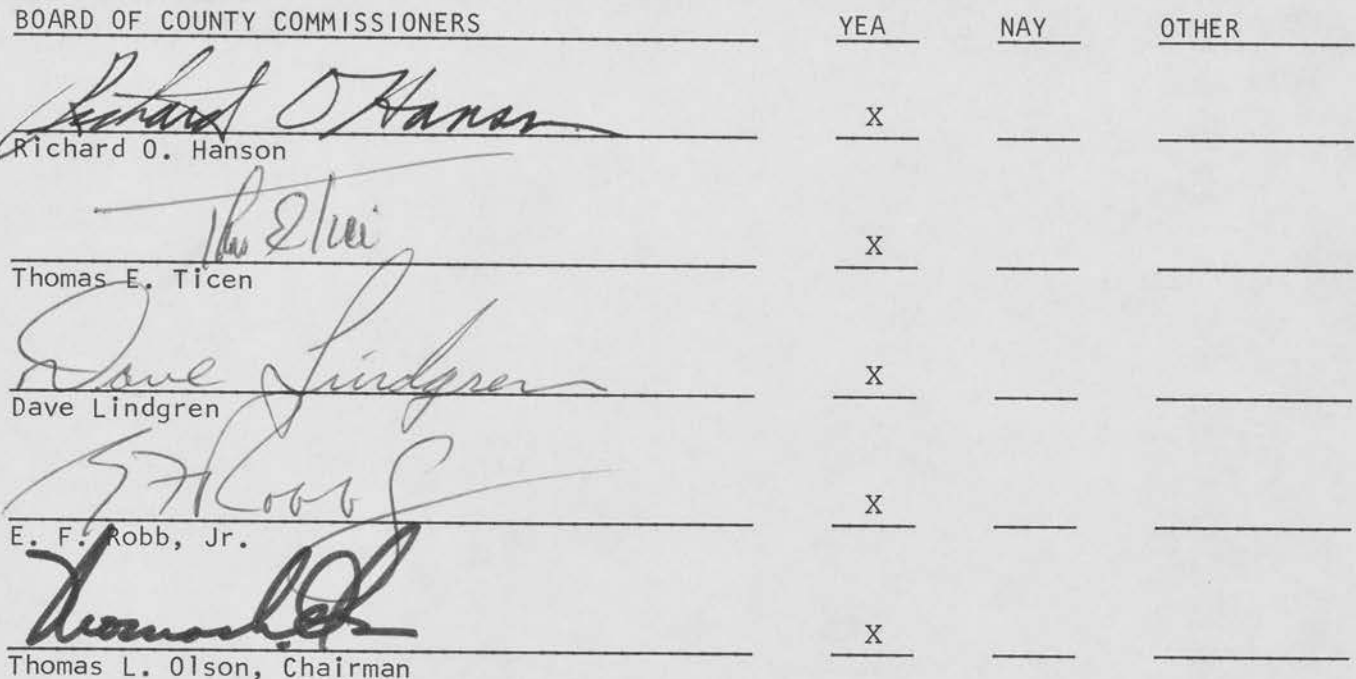 BOARD OF COUNTY COMMISSIONERS YEA NAY OTHER
Richard O Hanson X
Richard O. Hanson
X
Thomas E. Ticen
Dave Lindgren X
Dave Lindgren
E F Robb Jr X
E. F. Robb, Jr.
Thomas L. Olson X
Thomas L. Olson, Chairman